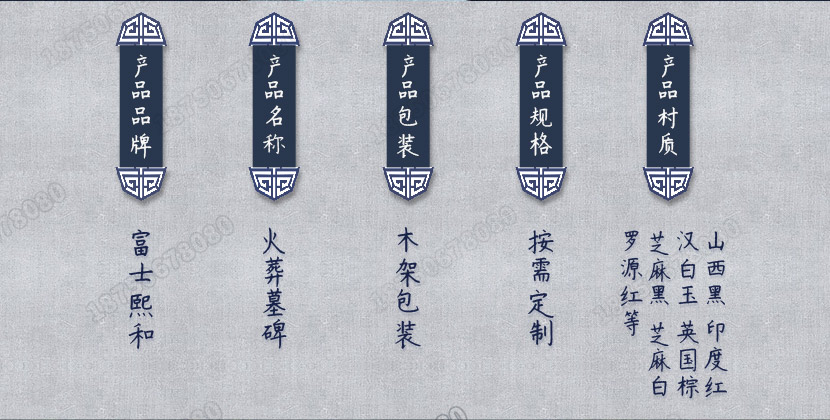 产品品牌
富士熙和
产品名称
火葬墓碑
产品包装
木架包装
产品规格
按需定制
产品材质
山西黑 印度红
汉白玉 英国棕
芝麻黑 芝麻白
罗源红等